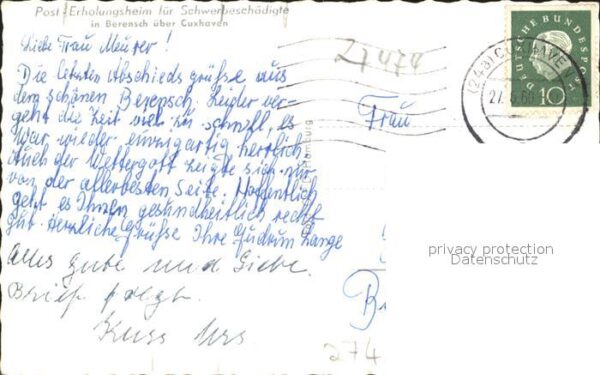 Post-Erholungsheim für Schwerbeschädigte
in Berensch über Cuxhaven
Liebe Frau Meurer!
Die letzten Abschiedsgrüsse aus
dem schönen Berensch. Leider ver-
geht die Zeit viel zu schnell, es
war wieder einzigartig herrlich.
Auch der Wettergott zeigte sich nur
von der allerbesten Seite. Hoffentlich
geht es Ihnen gesundheitlich recht
gut. Herzliche Grüsse Ihre Gudrun Lange
Alles Gute und Liebe.
Brief folgt.
Kuss
27474
Frau
B
274
DEUTSCHE BUNDESPOST
10
(24a) CUXHAVEN
27. 60
privacy protection
Datenschutz